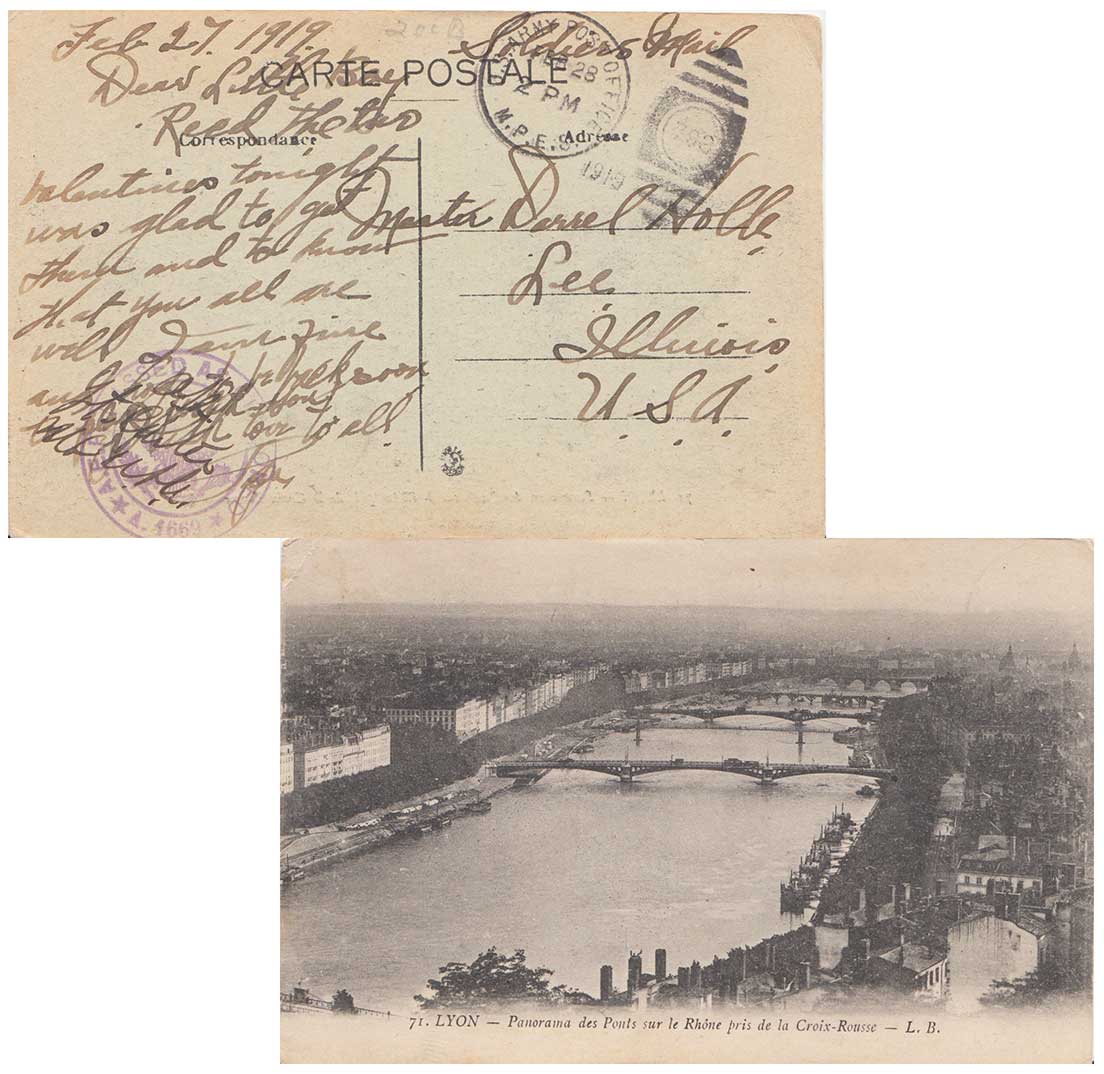 Feb 27, 1919
Soldiers Mail
200B
CARTE POSTALE
U.S. ARMY POST OFFICE
FEB 28
2 PM
M.P.E.S.
1919
Correspondance
Adresse
Dear Little
Recd the two
valentines tonight
was glad to get
them and to know
that you all are
well I am fine
and to be back soon
love to all
Master Darrel
Lee
Illinois
U.S.A.
A. 1669
71. LYON — Panorama des Ponts sur le Rhône pris de la Croix-Rousse — L. B.